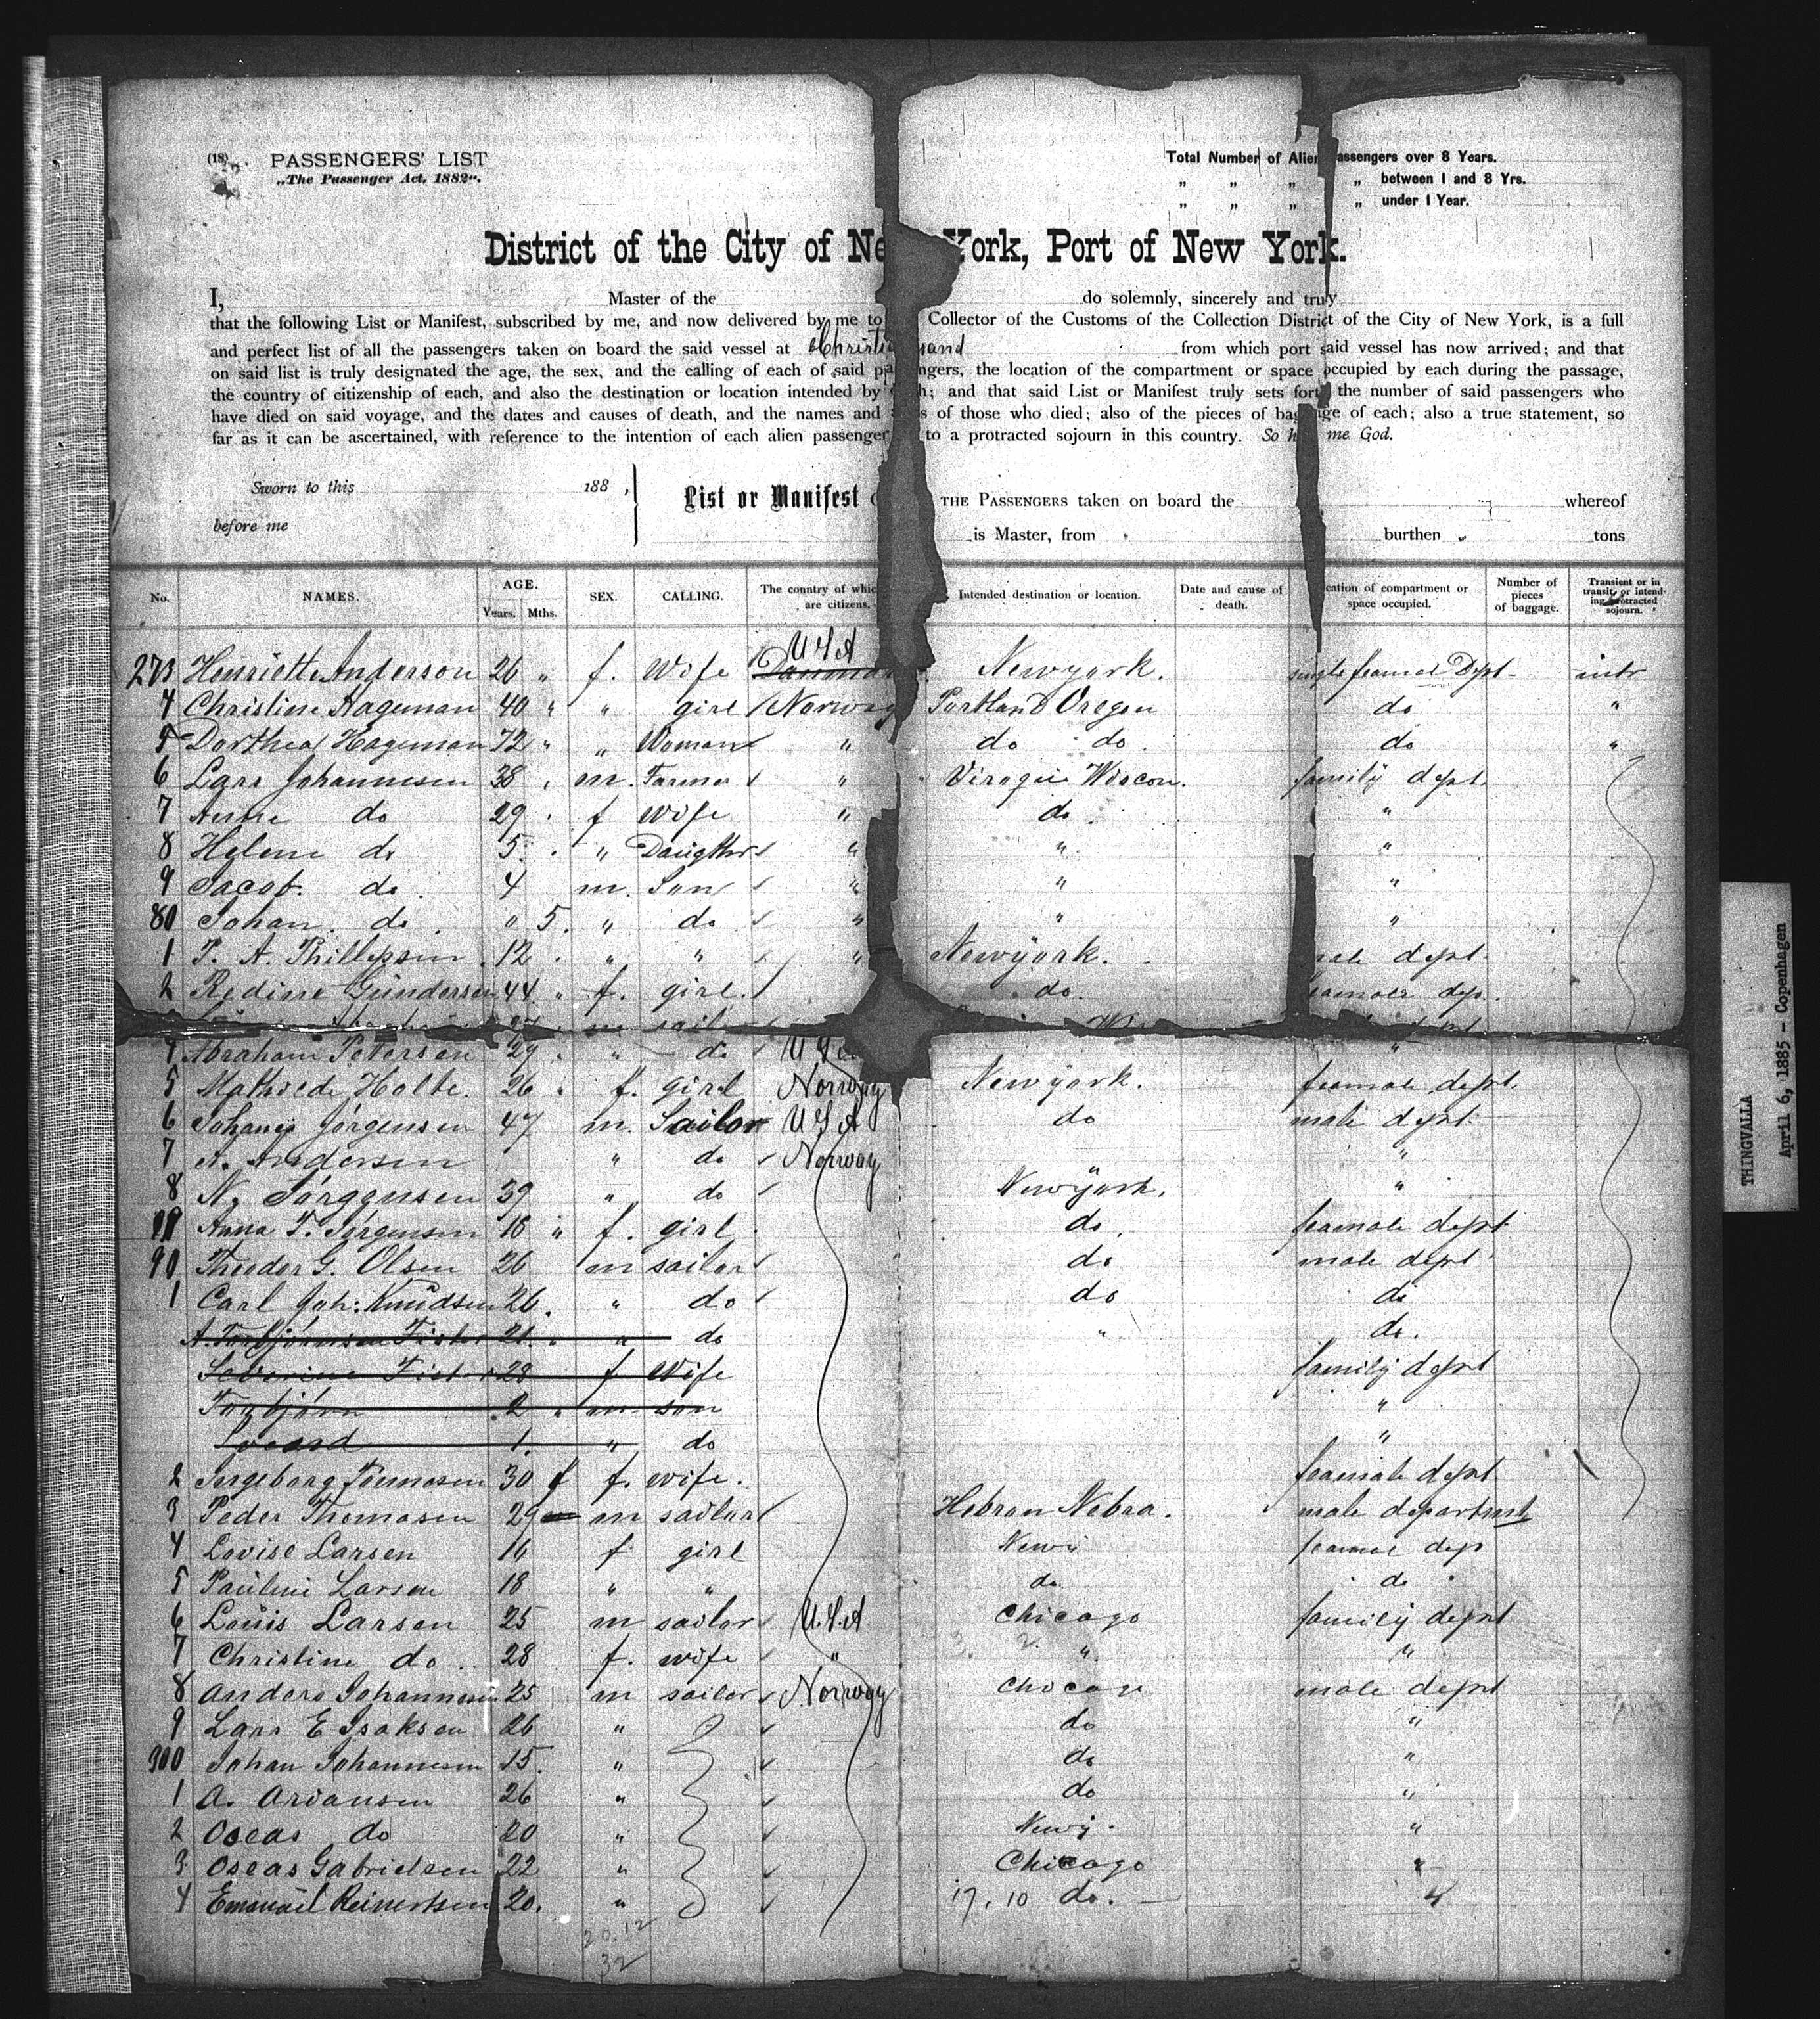 (18)
PASSENGERS' LIST
„The Passenger Act, 1882“.
Total Number of Alien assengers over 8 Years.
„ „ „ „ between 1 and 8 Yrs.
„ „ „ „ under 1 Year.
District of the City of Ne York, Port of New York.
I, Master of the do solemnly, sincerely and truly
that the following List or Manifest, subscribed by me, and now delivered by me to Collector of the Customs of the Collection District of the City of New York, is a full
and perfect list of all the passengers taken on board the said vessel at Christi sand from which port said vessel has now arrived; and that
on said list is truly designated the age, the sex, and the calling of each of said pa ngers, the location of the compartment or space occupied by each during the passage,
the country of citizenship of each, and also the destination or location intended by h; and that said List or Manifest truly sets forth the number of said passengers who
have died on said voyage, and the dates and causes of death, and the names and s of those who died; also of the pieces of bag age of each; also a true statement, so
far as it can be ascertained, with reference to the intention of each alien passenger to a protracted sojourn in this country. So h me God.
Sworn to this 188 ,
before me
List or Manifest THE PASSENGERS taken on board the whereof
is Master, from burthen tons
No. NAMES. AGE. Years. Mths. SEX. CALLING. The country of whic are citizens. Intended destination or location. Date and cause of death. cation of compartment or space occupied. Number of pieces of baggage. Transient or in transit, or intending protracted sojourn.
U S A
273 Henriette Anderson 26 " f. Wife Danmar Newyork. single feamal Dept intr
4 Christine Hageman 40 " " girl Norway Portland Oregon do "
5 Dorthea Hageman 72 " " Woman " do do. do "
6 Lars Johannesen 38 " m. Farmer " Viroqui Wiscon. family dept.
7 Anne do 29 f wife " do "
8 Helene do 5 " Daugther " " "
9 Jacob do 4 m. Son " " "
80 Johan do " 5. " do " " "
1 P. A. Phillipsen 12 " " " Newyork. male dept.
2 Redine Gundersen 44 " f. girl. do. feamale dep.
4 Abraham Petersen 29 " do U S "
5 Mathilde Holte 26 " f. girl Norway Newyork. feamale dept.
6 Johanes Jörgensen 47 m. Sailor U S A do male dept.
7 A. Andersen " do Norway " "
8 N. Jörgensen 39 " do Newyork. "
Anna T. Jörgensen 18 " f. girl do feamale dept
90 Theodor G. Olsen 26 m sailor do male dept
1 Carl Joh: Knudsen 26. " do do do
A. Torbjörnsen Fister 21 " " do " do.
Severine Fister 28 f Wife family dept
Torbjörn 2 " m son "
1. " do "
2 Ingeborg Tönnesen 30 f f. wife. feamale dept
3 Peder Thomasen 29 m sailor Hebron Nebra. male department
4 Lovise Larsen 16 f girl Newy feamal dep
5 Pauline Larsen 18 " " do. do
6 Louis Larsen 25 m sailor U.S.A Chicago family dept
7 Christine do 28 f. wife " " "
8 Anders Johannesen 25 m sailor Norway Chicago male dept
9 Lars E Isaksen 26 " do "
300 Johan Johannesen 15. " do "
1 A. Ariansen 26 " do "
2 Oseas do 20 " Newy. "
3 Oseas Gabrielsen 22 " Chicago "
4 Emanuel Reinertsen 20. " 17.10 do.
20.12
32
THINGVALLA
April 6, 1885 - Copenhagen